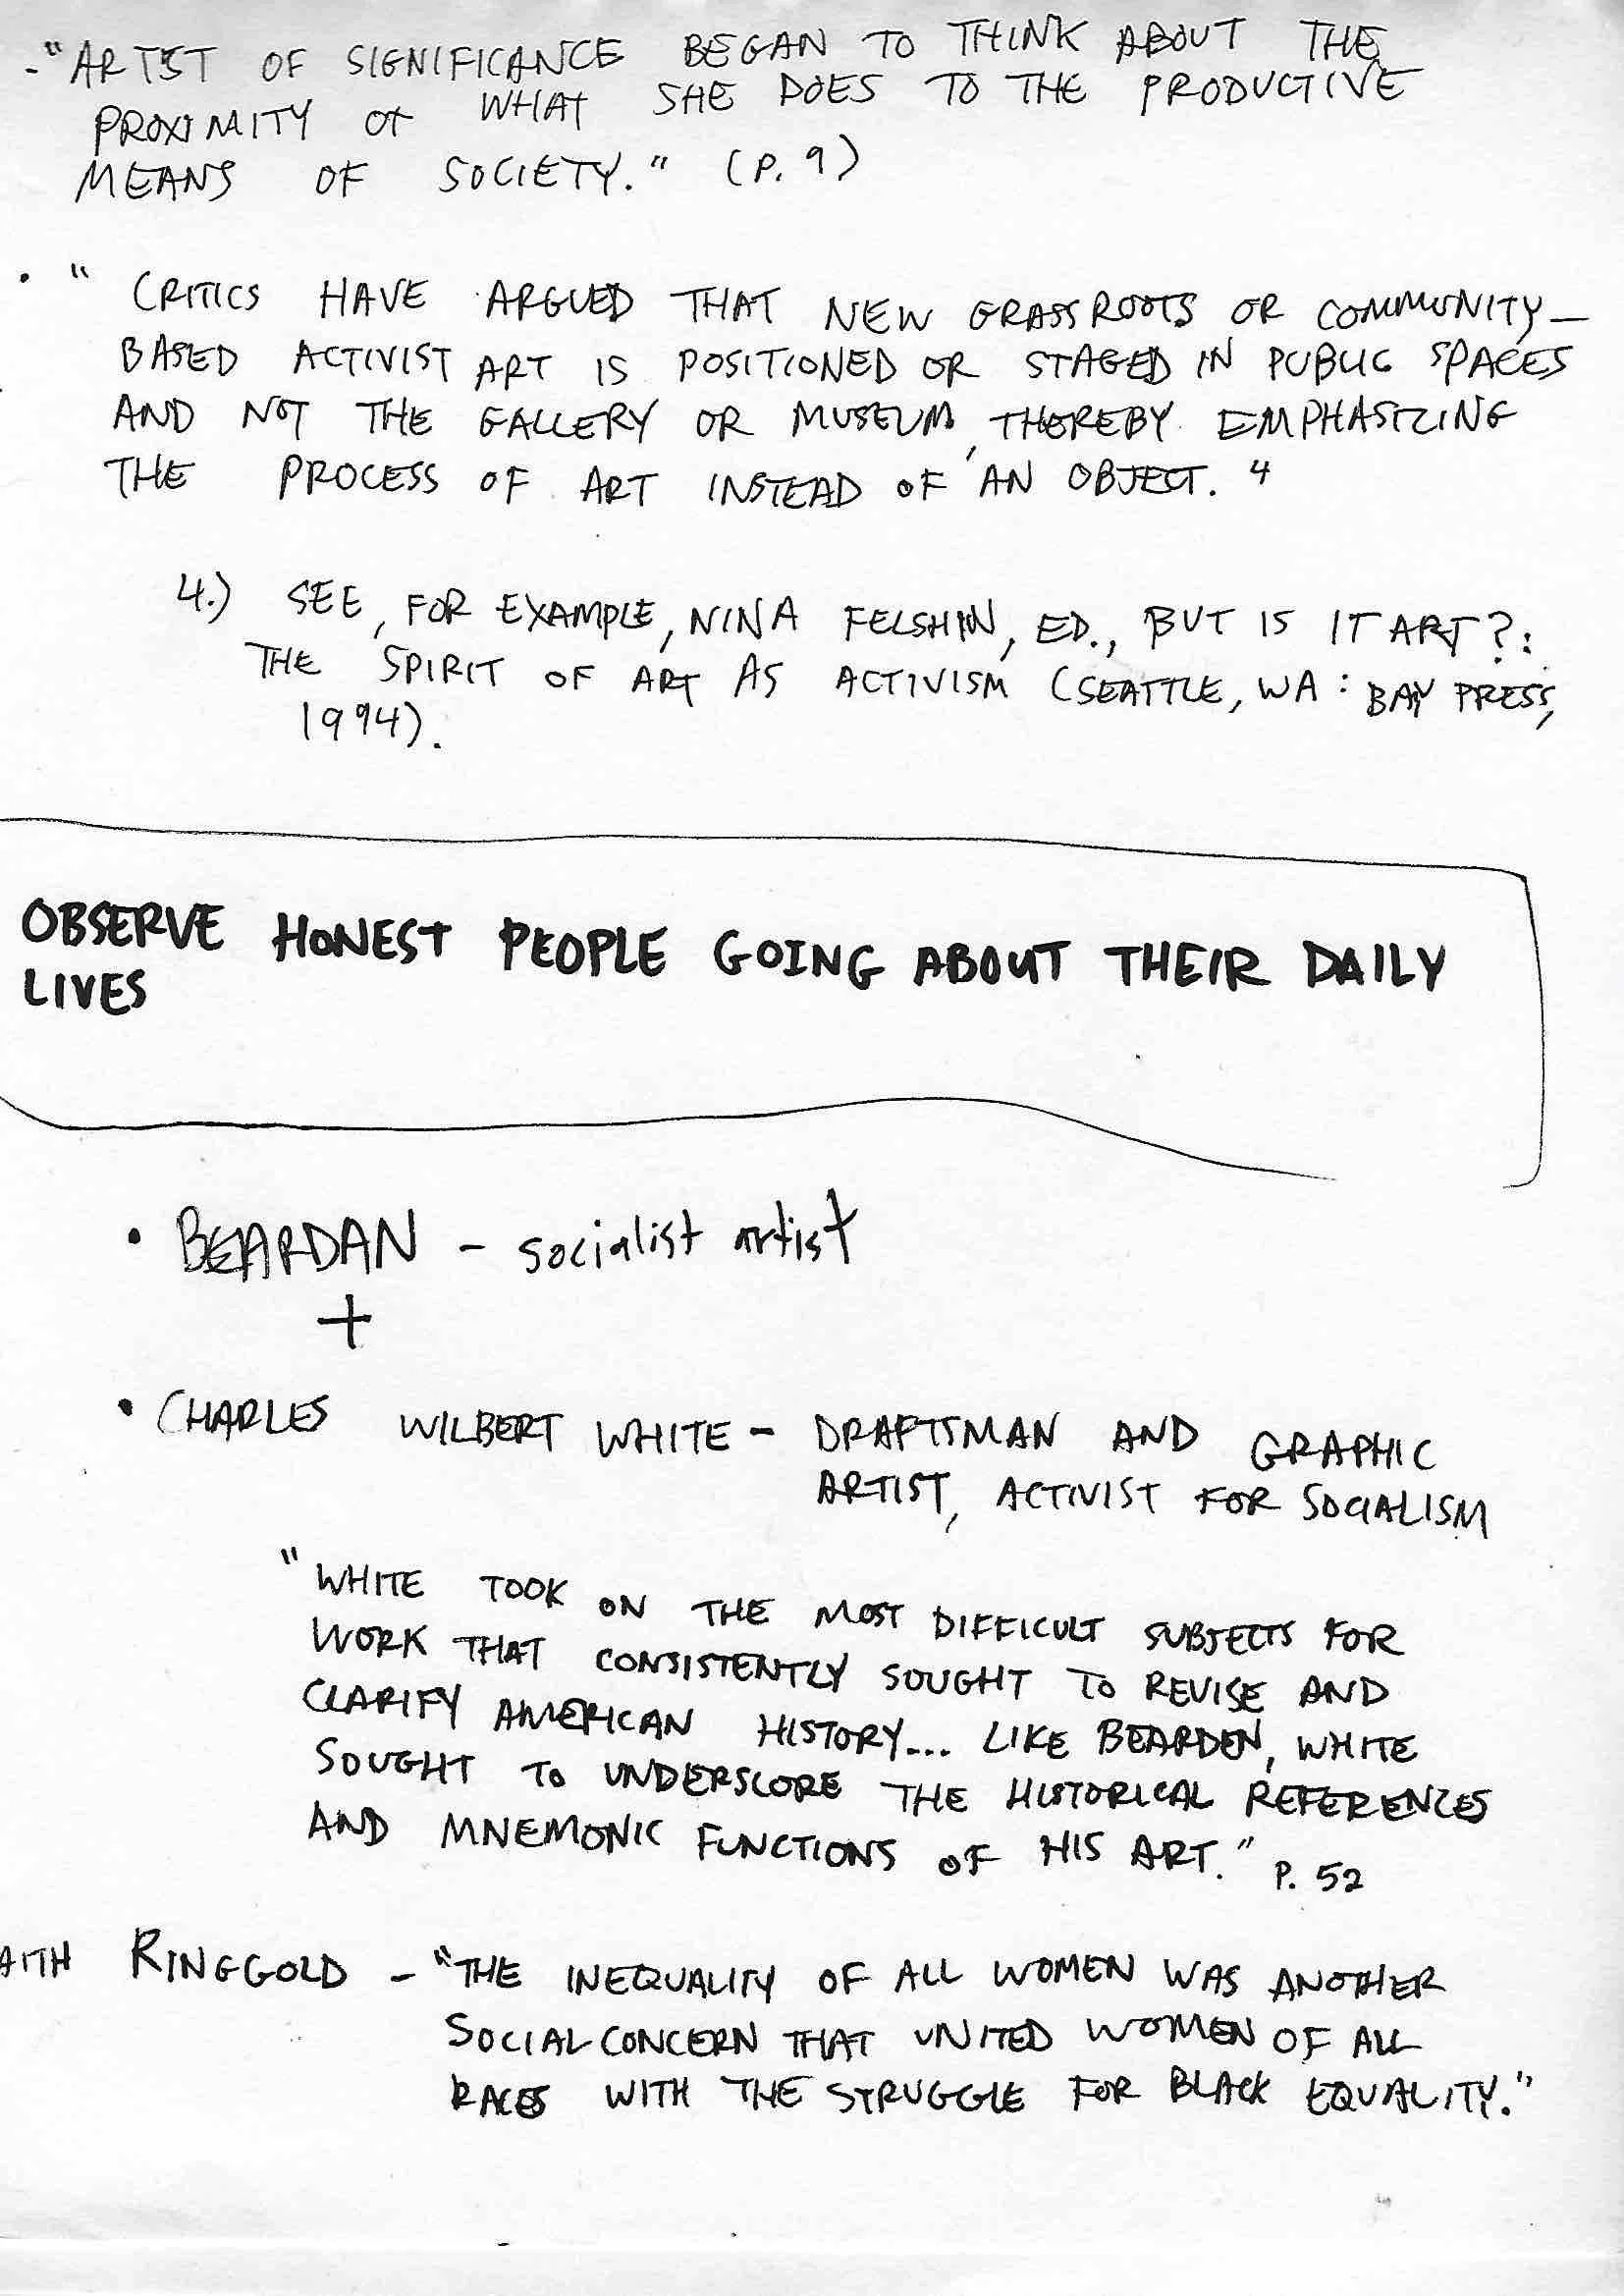 -"ARTIST OF SIGNIFICANCE BEGAN TO THINK ABOUT THE
PROXIMITY OF WHAT SHE DOES TO THE PRODUCTIVE
MEANS OF SOCIETY." (P. 9)
• " CRITICS HAVE ARGUED THAT NEW GRASSROOTS OR COMMUNITY-
BASED ACTIVIST ART IS POSITIONED OR STAGED IN PUBLIC SPACES
AND NOT THE GALLERY OR MUSEUM, THEREBY EMPHASIZING
THE PROCESS OF ART INSTEAD OF AN OBJECT. 4
4.) SEE, FOR EXAMPLE, NINA FELSHIN, ED., BUT IS IT ART?:
THE SPIRIT OF ART AS ACTIVISM (SEATTLE, WA: BAY PRESS,
1994).
OBSERVE HONEST PEOPLE GOING ABOUT THEIR DAILY
LIVES
• BEARDAN - socialist artist
+
• CHARLES WILBERT WHITE - DRAFTSMAN AND GRAPHIC
ARTIST, ACTIVIST FOR SOCIALISM
"WHITE TOOK ON THE MOST DIFFICULT SUBJECTS FOR
WORK THAT CONSISTENTLY SOUGHT TO REVISE AND
CLARIFY AMERICAN HISTORY... LIKE BEARDEN, WHITE
SOUGHT TO UNDERSCORE THE HISTORICAL REFERENCES
AND MNEMONIC FUNCTIONS OF HIS ART." P. 52
AITH RINGGOLD - "THE INEQUALITY OF ALL WOMEN WAS ANOTHER
SOCIAL CONCERN THAT UNITED WOMEN OF ALL
RACES WITH THE STRUGGLE FOR BLACK EQUALITY."